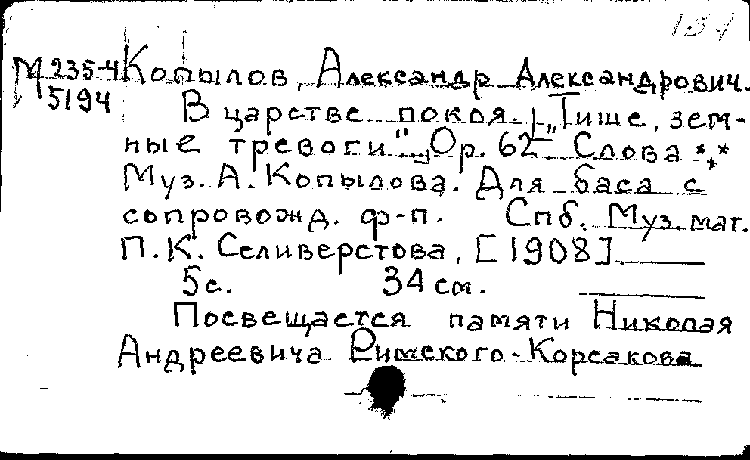 М 235-4 Копылов, Александр Александрович.
5194
В царстве покоя. „Тише, зем-
ные тревоги“. Ор. 62 Слова ***
Муз. А. Копылова. Для баса с
сопровожд. ф-п. Спб. Муз. маг.
П. К. Селиверстова, [1908].
5 с. 34 см.
Посвещается памяти Николая
Андреевича Римского-Корсакова